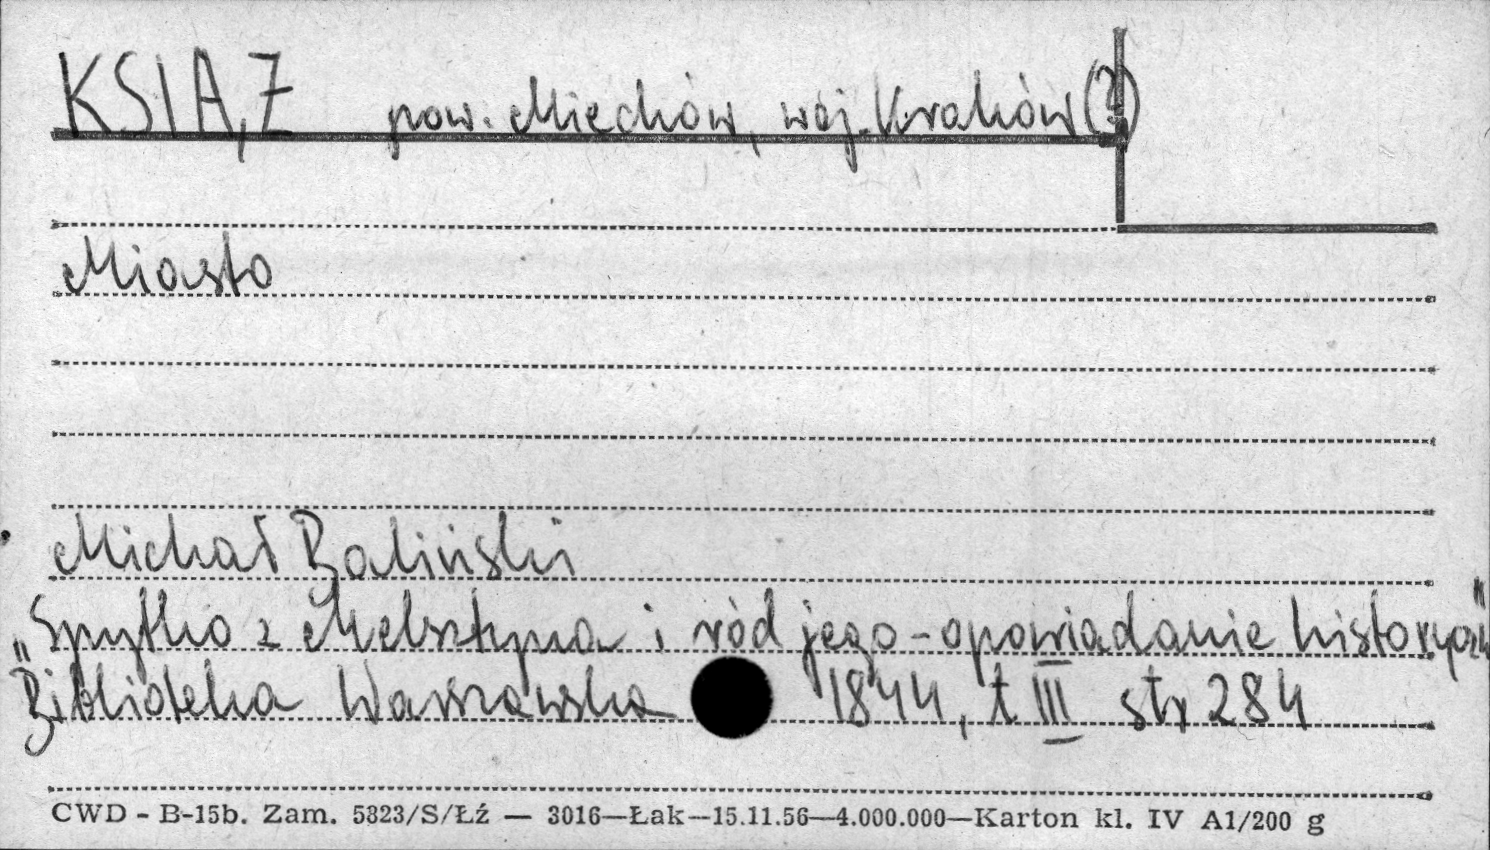 KSIĄŻ pow. Miechów, woj. Kraków (?)
Miasto
Michał Baliński
„Spytko z Melsztyna i ród jego - opowiadanie historyczn"
Biblioteka Warszawska 1844, t III str 284
CWD - B-15b. Zam. 5823/S/Łź — 3016—Łak—15.11.56—4.000.000—Karton kl. IV A1/200 g